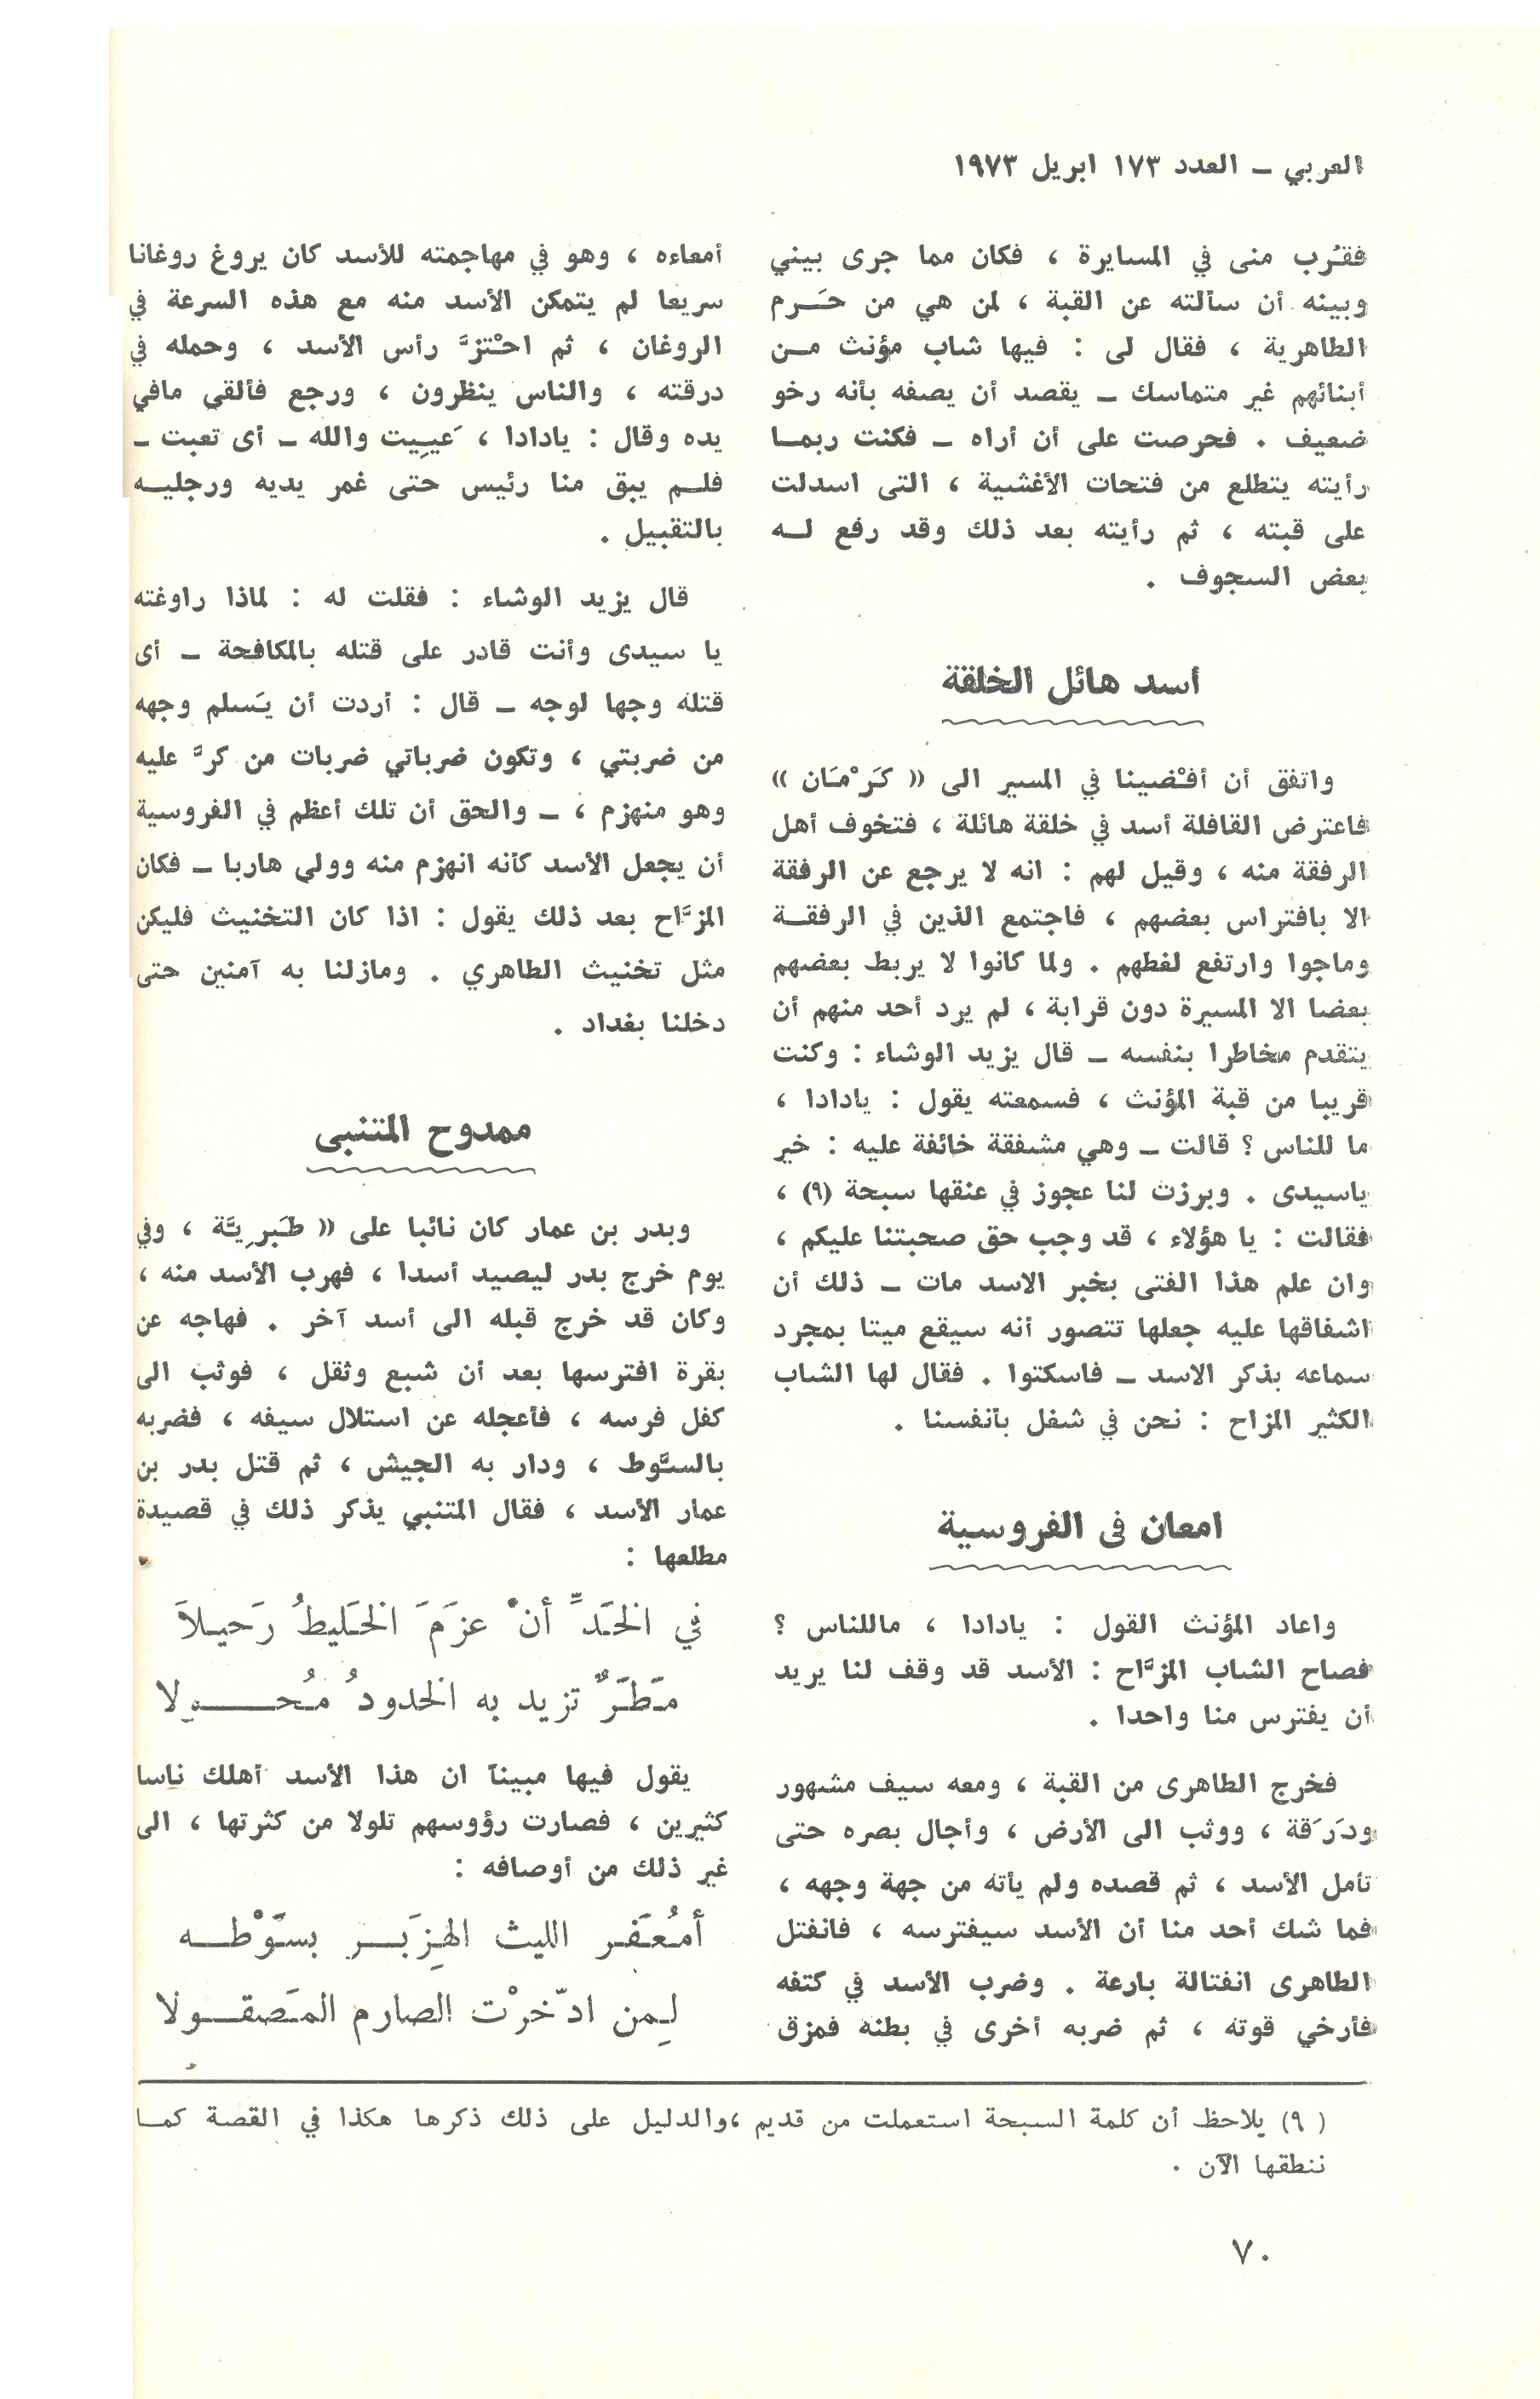 العربي – العدد ١٧٣ ابريل ١٩٧٣
فقَرُب منى في المسايرة ، فكان مما جرى بيني
وبينه أن سألته عن القبة ، لمن هي من حَـرم
الطاهرية ، فقال لى : فيها شاب مؤنث مـن
أبنائهم غير متماسك – يقصد أن يصفه بأنه رخو
ضعيف . فحرصت على أن أراه – فكنت ربمـا
رأيته يتطلع من فتحات الأغشية ، التى اسدلت
على قبته ، ثم رأيته بعد ذلك وقد رفع لـه
بعض السجوف .
أسد هائل الخلقة
واتفق أن أفْضينا في المسير الى « كَرْمَان »
فاعترض القافلة أسد في خلقة هائلة ، فتخوف أهل
الرفقة منه ، وقيل لهم : انه لا يرجع عن الرفقة
الا بافتراس بعضهم ، فاجتمع الذين في الرفقـة
وماجوا وارتفع لغطهم . ولما كانوا لا يربط بعضهم
بعضا الا المسيرة دون قرابة ، لم يرد أحد منهم أن
يتقدم مخاطرا بنفسه – قال يزيد الوشاء : وكنت
قريبا من قبة المؤنث ، فسمعته يقول : يادادا ،
ما للناس ؟ قالت – وهي مشفقة خائفة عليه : خير
ياسيدى . وبرزت لنا عجوز في عنقها سبحة (٩) ،
فقالت : يا هؤلاء ، قد وجب حق صحبتنا عليكم ،
وان علم هذا الفتى بخبر الاسد مات – ذلك أن
اشفاقها عليه جعلها تتصور أنه سيقع ميتا بمجرد
سماعه بذكر الاسد – فاسكتوا . فقال لها الشاب
الكثير المزاح : نحن في شغل بأنفسنا .
امعان فى الفروسية
واعاد المؤنث القول : يادادا ، ماللناس ؟
فصاح الشاب المزَّاح : الأسد قد وقف لنا يريد
أن يفترس منا واحدا .
فخرج الطاهرى من القبة ، ومعه سيف مشهور
ودَرَقة ، ووثب الى الأرض ، وأجال بصره حتى
تأمل الأسد ، ثم قصده ولم يأته من جهة وجهه ،
فما شك أحد منا أن الأسد سيفترسه ، فانفتل
الطاهرى انفتالة بارعة . وضرب الأسد في كتفه
فأرخي قوته ، ثم ضربه أخرى في بطنه فمزق
أمعاءه ، وهو في مهاجمته للأسد كان يروغ روغانا
سريعا لم يتمكن الأسد منه مع هذه السرعة في
الروغان ، ثم احْتزَّ رأس الأسد ، وحمله في
درقته ، والناس ينظرون ، ورجع فألقي مافي
يده وقال : يادادا ، عَيِيت والله – أى تعبت –
فلـم يبق منا رئيس حتى غمر يديه ورجليـه
بالتقبيل .
قال يزيد الوشاء : فقلت له : لماذا راوغته
يا سيدى وأنت قادر على قتله بالمكافحة – أى
قتله وجها لوجه – قال : أردت أن يَسلم وجهه
من ضربتي ، وتكون ضرباتي ضربات من كرَّ عليه
وهو منهزم ، – والحق أن تلك أعظم في الفروسية
أن يجعل الأسد كأنه انهزم منه وولي هاربا – فكان
المزَّاح بعد ذلك يقول : اذا كان التخنيث فليكن
مثل تخنيث الطاهري . ومازلنا به آمنين حتى
دخلنا بغداد .
ممدوح المتنبى
وبدر بن عمار كان نائبا على « طَبَرِيَّة ، وفي
يوم خرج بدر ليصيد أسدا ، فهرب الأسد منه ،
وكان قد خرج قبله الى أسد آخر . فهاجه عن
بقرة افترسها بعد أن شبع وثقل ، فوثب الى
كفل فرسه ، فأعجله عن استلال سيفه ، فضربه
بالسَّوط ، ودار به الجيش ، ثم قتل بدر بن
عمار الأسد ، فقال المتنبي يذكر ذلك في قصيدة
مطلعها :
في الخَدِّ أنْ عزَمَ الخَليطُ رَحيـلاَ
مَطَرٌ تزيد به الخدودُ مُحـــولا
يقول فيها مبيناً ان هذا الأسد أهلك ناسا
كثيرين ، فصارت رؤوسهم تلولا من كثرتها ، الى
غير ذلك من أوصافه :
أمُعَفَر الليث الهِزَبـر بسَوْطـه
لِمن ادّخرْت الصارم المَصقـولا
(٩) يلاحظ أن كلمة السبحة استعملت من قديم ،والدليل على ذلك ذكرها هكذا في القصة كمـا
ننطقها الآن .
٧٠